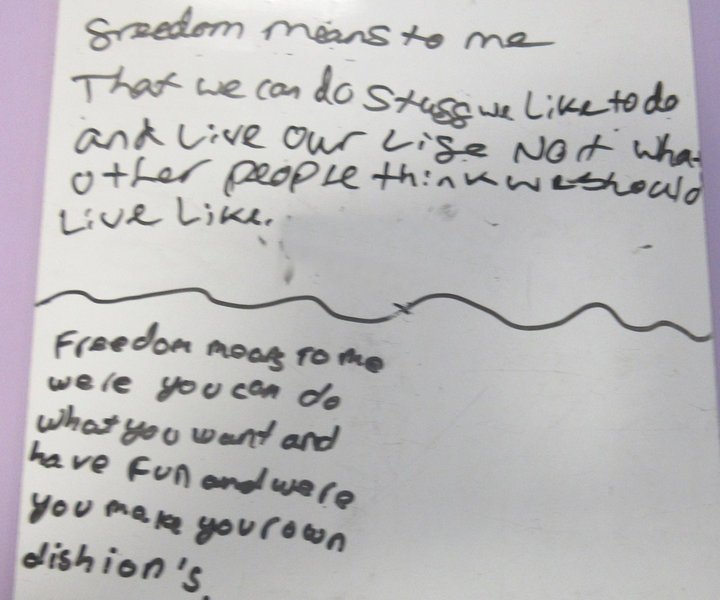 freedom means to me
That we can do stuff we Like to do
and Live our Life Not wha
other people think we should
Live Like.
Freedom means to me
were you can do
what you want and
have fun and were
you make your own
dishion's.